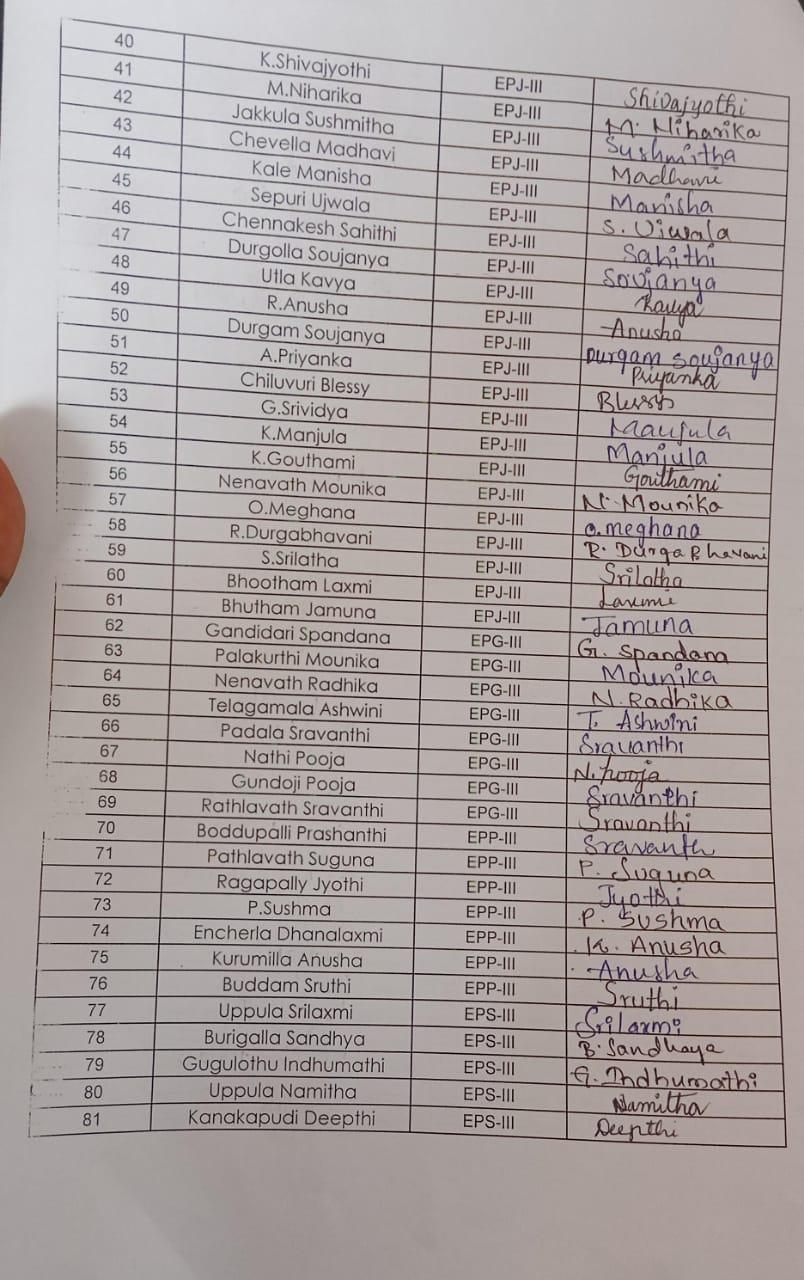 40 K.Shivajyothi EPJ-III Shivajyothi
41 M.Niharika EPJ-III M. Niharika
42 Jakkula Sushmitha EPJ-III Sushmitha
43 Chevella Madhavi EPJ-III Madhavi
44 Kale Manisha EPJ-III Manisha
45 Sepuri Ujwala EPJ-III S. Ujwala
46 Chennakesh Sahithi EPJ-III Sahithi
47 Durgolla Soujanya EPJ-III Soujanya
48 Utla Kavya EPJ-III Kavya
49 R.Anusha EPJ-III Anusha
50 Durgam Soujanya EPJ-III Durgam soujanya
51 A.Priyanka EPJ-III Priyanka
52 Chiluvuri Blessy EPJ-III Blessy
53 G.Srividya EPJ-III Manjula
54 K.Manjula EPJ-III Manjula
55 K.Gouthami EPJ-III Gouthami
56 Nenavath Mounika EPJ-III N. Mounika
57 O.Meghana EPJ-III O.meghana
58 R.Durgabhavani EPJ-III R. Durga Bhavani
59 S.Srilatha EPJ-III Srilatha
60 Bhootham Laxmi EPJ-III Laxmi
61 Bhutham Jamuna EPJ-III Jamuna
62 Gandidari Spandana EPG-III G. Spandana
63 Palakurthi Mounika EPG-III Mounika
64 Nenavath Radhika EPG-III N. Radhika
65 Telagamala Ashwini EPG-III T. Ashwini
66 Padala Sravanthi EPG-III Sravanthi
67 Nathi Pooja EPG-III N. Pooja
68 Gundoji Pooja EPG-III Sravanthi
69 Rathlavath Sravanthi EPG-III Sravanthi
70 Boddupalli Prashanthi EPP-III Sravanth
71 Pathlavath Suguna EPP-III P. Suguna
72 Ragapally Jyothi EPP-III Jyothi
73 P.Sushma EPP-III P. Sushma
74 Encherla Dhanalaxmi EPP-III K. Anusha
75 Kurumilla Anusha EPP-III Anusha
76 Buddam Sruthi EPP-III Sruthi
77 Uppula Srilaxmi EPS-III Srilaxmi
78 Burigalla Sandhya EPS-III B. Sandhaya
79 Gugulothu Indhumathi EPS-III G. Indhumathi
80 Uppula Namitha EPS-III Namitha
81 Kanakapudi Deepthi EPS-III Deepthi